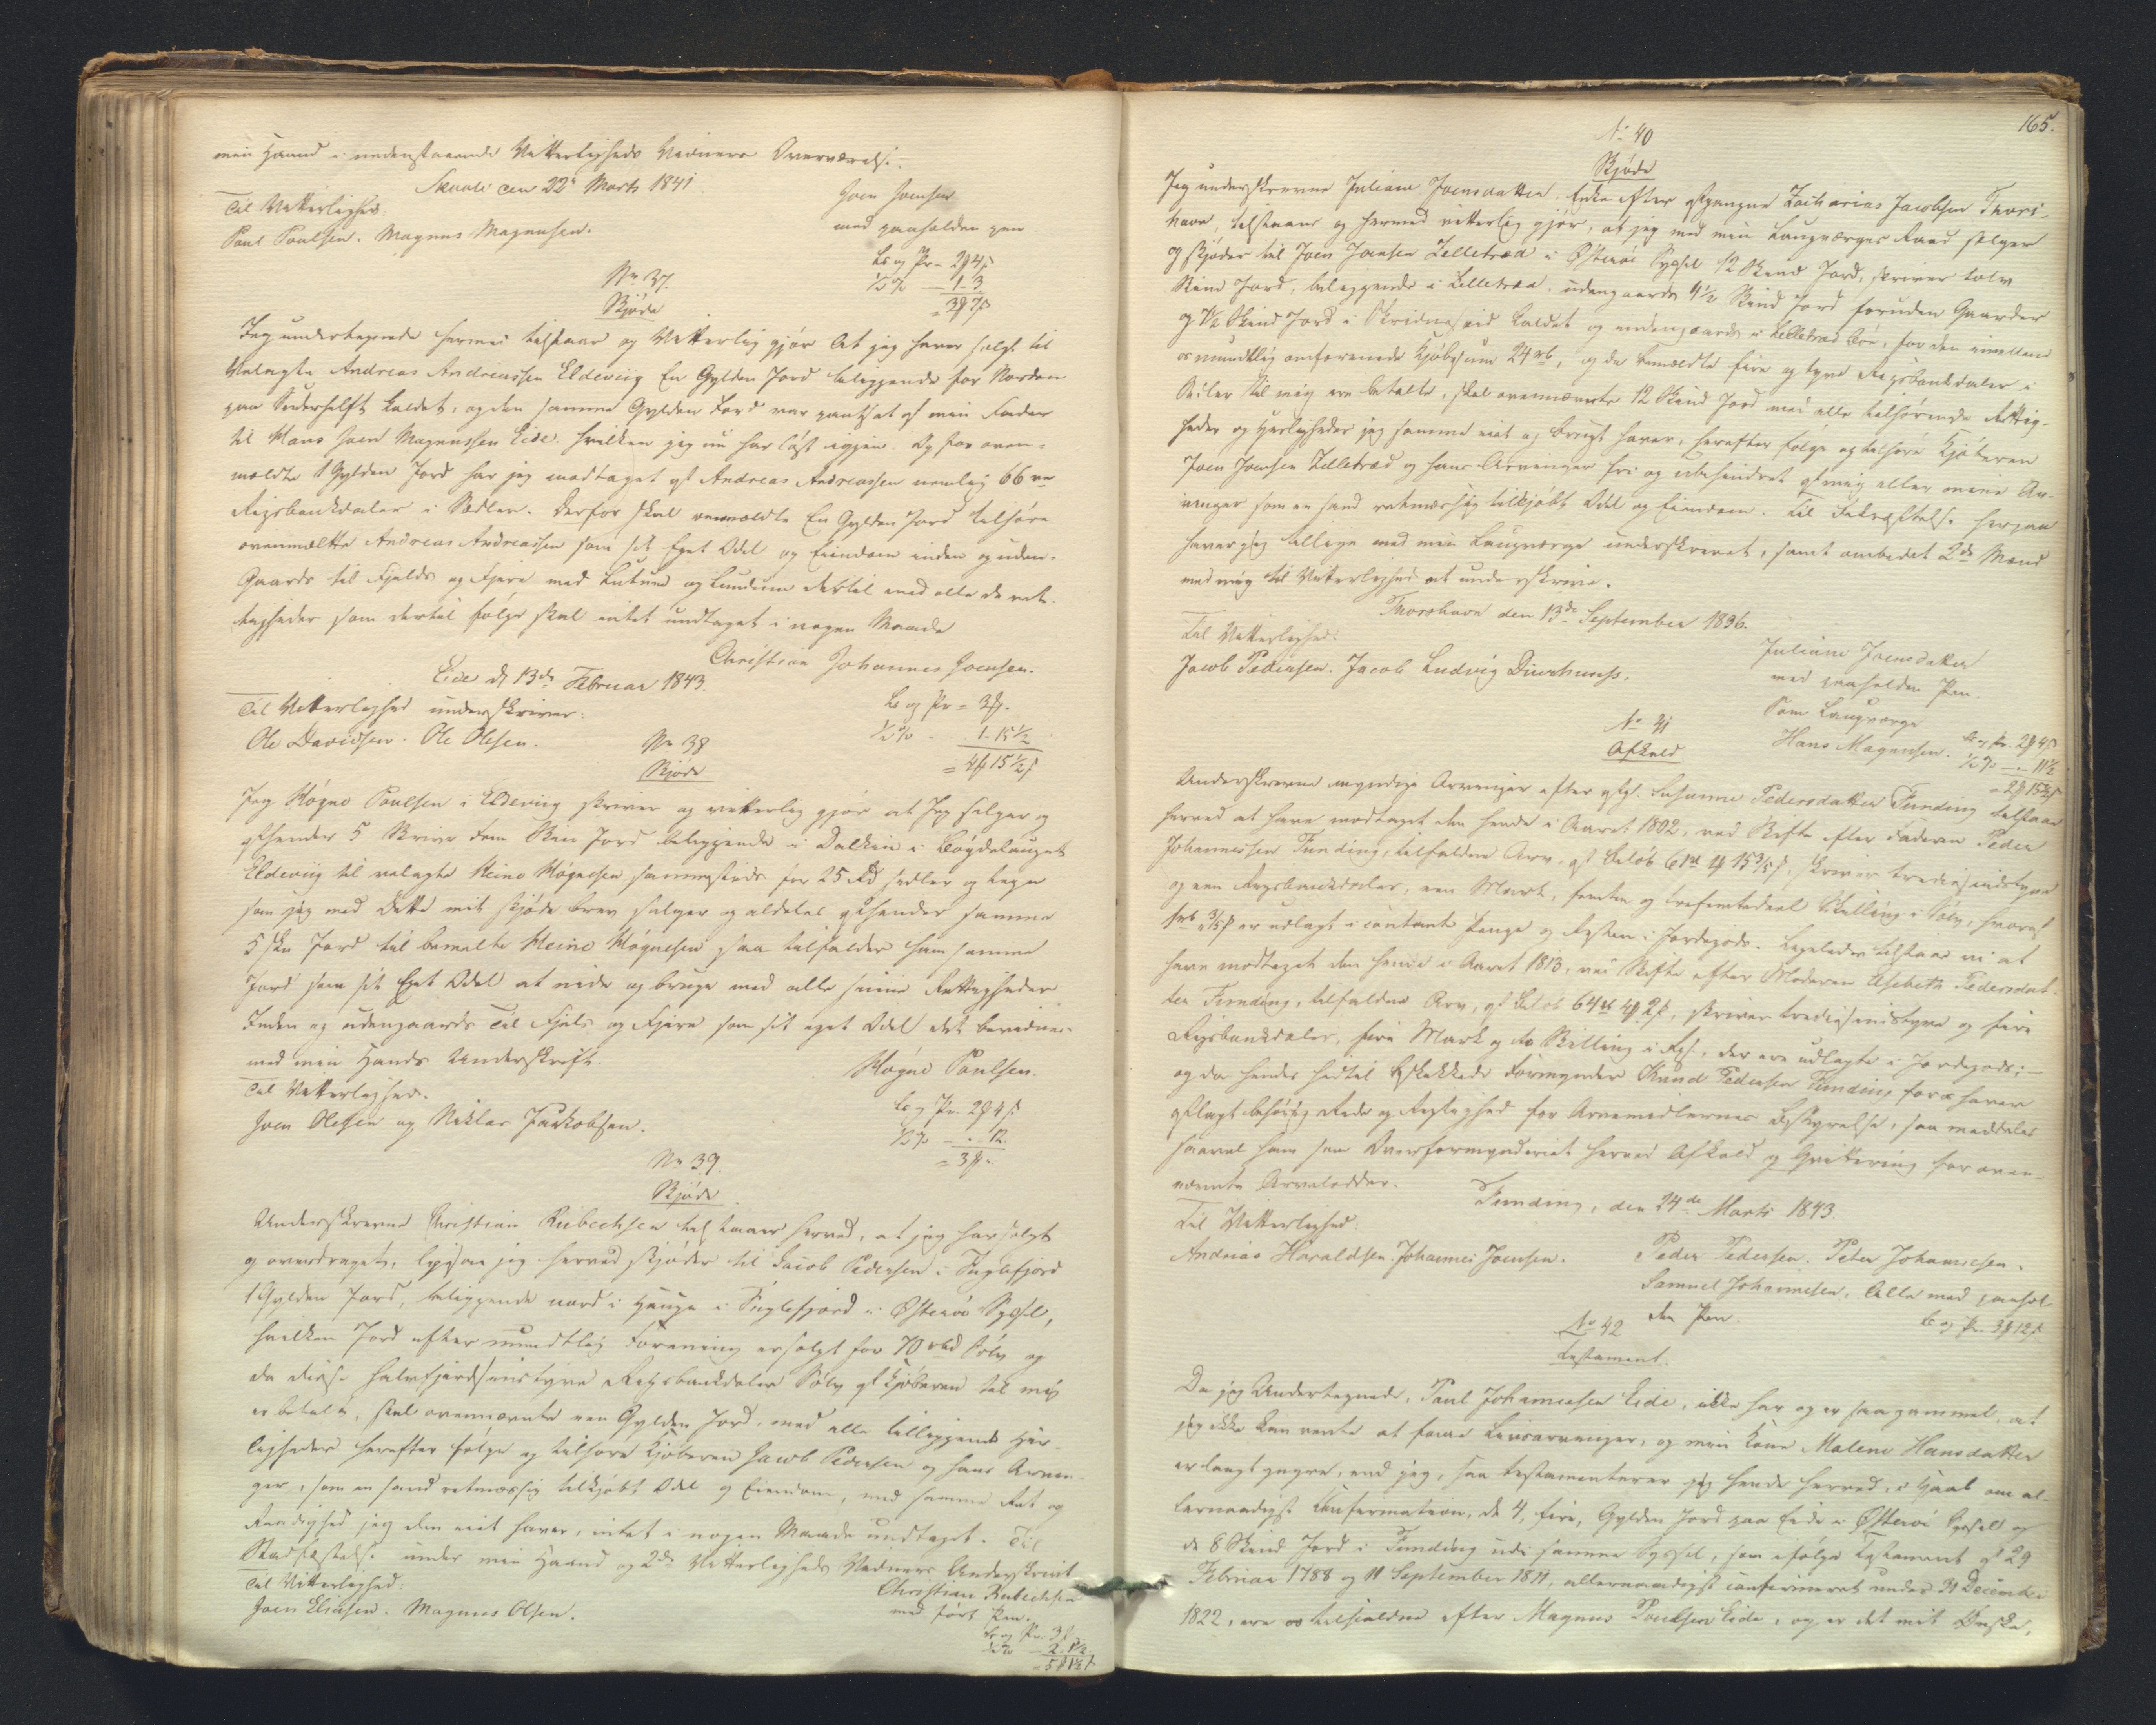 min Haand i nedenstaaende Vitterligheds Vidners Overværelse.
Skaale den 22de Marts 1841.
Til Vitterlighed:
Joen Joensen
Poul Poulsen. Magnus Magnusen.
med paaholden pen
Ls og Pr = 2 4
½ % — 1 3
= 3 7
No 37.
Skjøde
Jeg undertegnede hermed tilstaar og Vitterlig gjør At jeg haver solgt til
Velagte Andreas Andreassen Eldeviig En Gylden Jord beliggende for Norden
paa Sudurhelft kaldet, og den samme Gylden Jord var pantsat af min Fader
til Mons Joen Magnussen Eide. hvilken jeg nu har løst igjen. Og for oven-
meldte 1 Gylden Jord har jeg modtaget af Andreas Andreassen nemlig 66
Rigsbankdaler i Sedler. Derfor skal anmeldte En Gylden Jord tilhøre
ovenmeldte Andreas Andreassen som sit Eget Odel og Eiendom inden og uden-
Gaards til Fjelds og Fjære med Lutum og Lundum dertil med alle de ret-
tigheder som dertil følge skal intet undtaget i nogen Maade
Christian Johannes Joensen.
Eide d 13de Februar 1843.
Til Vitterlighed underskriver:
Ole Davidsen. Ole Olesen.
Ls og Pr = 3
½ % . . 1. 15½
= 4 15½
No 38
Skjøde
Jeg Høgne Poulsen i Eldeviig skriver og vitterlig gjør at Jeg sælger og
afhender 5 Skriver Fem Skin Jord beliggende i Dalkin i Bøgdelauget
Eldeviig til velagte Heine Høgnesen sammesteds for 25 Rd sedler og tegn
som jeg med Dette mit skjøde brev sælger og aldeles afhender samme
5 skn Jord til bemelte Heine Høgnesen saa tilfalder ham samme
Jord som sit Eget Odel at nide og bruge med alle sinne Rettigheder
Inden og udengaards Til Fjels og Fjære som sit eget Odel det bevidnes
med min Hands Underskrift.
Høgne Poulsen.
Til Vitterlighed.
Joen Olesen og Niklas Jackobsen.
Ls og Pr. 2 4
½ % — . — 12.
= 3 .
No 39.
Skjøde
Underskrevne Christian Rubechsen tilstaaer herved, at jeg har solgt
og overdraget, ligesom jeg herved skjøder til Jacob Pedersen i Fuglefjord
1 Gylden Jord, beliggende nord i Hauge i Fuglefjord i Østerøe Syssel,
hvilken Jord efter mundtlig Forening er solgt for 70 rbd Sølv og
da disse halvfjerdsinstyve Rigsbankdaler Sølv af Kjøberen til mig
er betalt, skal ovennævnte een Gylden Jord, med alle tilliggende Her-
ligheder herefter følge og tilhøre Kjøberen Jacob Pedersen og hans Arvin-
ger, som en sand retmæssig tilkjøbt Odel og Eiendom, med samme Ret og
Rændighed jeg den eiet haver, intet i nogen Maade undtaget. Til
Stadfæstelse under min Haand og 2de Vitterligheds Vidners Underskrivt
Christian Rubechsen
Til Vitterlighed:
med ført Pen.
Joen Eliasen. Magnus Olsen.
Ls og Pr. 3
½ % — 2. 1½
= 5 1½
165.
No 40
Skjøde
Jeg underskrevne Juliane Joensdatter, Enke efter afgangne Zacharias Jacobsen Thors-
havn, tilstaaer og hermed vitterlig gjør, at jeg med min Laugværges Raad sælger
og skjøder til Joen Joensen Lelletræd i Østerøe Syssel 12 Skind Jord, skriver tolv
Skind Jord, beliggende i Lelletræd, udengaards 4½ Skind Jord foruden Gaarder
og 7½ Skind Jord i Skridneseid kaldet og indengaards i Lelletræd Bøe, for den imellem
os mundtlig omforenede Kjøbesum 24 rb, og da bemældte fire og tyve Rigsbankdaler i
Seiler til mig ere betalte, skal ovennævnte 12 Skind Jord med alle tilhørende Rettig-
heder og Herligheder jeg samme eiet og brugt haver, herefter følge og tilhøre Kjøberen
Joen Joensen Lelletræd og hans Arvinger fri og ubehindret af mig eller mine Ar-
vinger som en sand retmæssig tilkjøbt Odel og Eiendom. Til Bekræftelse herpaa
haver jeg tillige med min Laugværge underskrevet, samt ombedet 2de Mænd
med mig til Vitterlighed at underskrive.
Thorshavn den 13de September 1836.
Til Vitterlighed:
Juliane Joensdatter
Jacob Pedersen. Jacob Ludvig Diurhuuss.
med paaholden Pen.
Som Laugværge
Hans Magnusen.
Ls og Pr. 2 4
½ % — . — 11½
= 2 15½
No 41
Afkald
Underskrevne myndige Arvinger efter afg. Susanne Pedersdatter Funding tilstaae
herved at have modtaget den hende i Aaret 1802, ved Skifte efter Faderen Peder
Johannesen Funding, tilfaldne Arv, af Beløb 61 rb 1 15 3/5, skriver tredsindstyve
og een Rigsbankdaler, een Mark, femten og trefemtedeel Skilling i Sølv, hvoraf
1 rb 3/5 er udlagt i contante Penge og Resten i Jordegods. Ligeledes tilstaae vi at
have modtaget den hende i Aaret 1813, ved Skifte efter Moderen Elsebeth Pedersdat-
ter Funding, tilfaldne Arv, af Beløb 64 rb 4 2, skriver tredsindstyve og fire
Rigsbankdaler, fire Mark og to Skilling i , der ere udlagte i Jordegods; —
og da hendes hidtil beskikkede Formynder Knud Pedersen Funding for os haver
aflagt behørig Rede og Rigtighed for Arvemidlernes Bestyrelse, saa meddeles
saavel ham som Overformynderiet herved Afkald og Qvittering for oven-
nævnte Arvelodder.
Funding, den 24de Marts 1843.
Til Vitterlighed.
Andrias Haraldsen. Johannes Joensen.
Peder Pedersen. Peter Johannesen.
Samuel Johannesen. Alle med paahol-
den Pen.
Ls og Pr. 3 12
No 42
Testament.
Da jeg Undertegnede, Poul Johannesen Eide, ikke har og er saa gammel, at
jeg ikke kan vente at faae Livsarvinger, og min Kone Malene Hansdatter
er langt yngre, end jeg, saa testamenterer jeg hende herved, i Haab om al-
lernaadigst Confirmation, de 4, fire, Gylden Jord paa Eide i Østerøe Syssel og
de 8 Skind Jord i Funding udi samme Syssel, som ifølge Testament af 29
Februar 1788 og 11 September 1811, allernaadigst confirmeret under 31 December
1822, ere os tilfaldne efter Magnus Poulsen Eide, og er det mit Ønske,